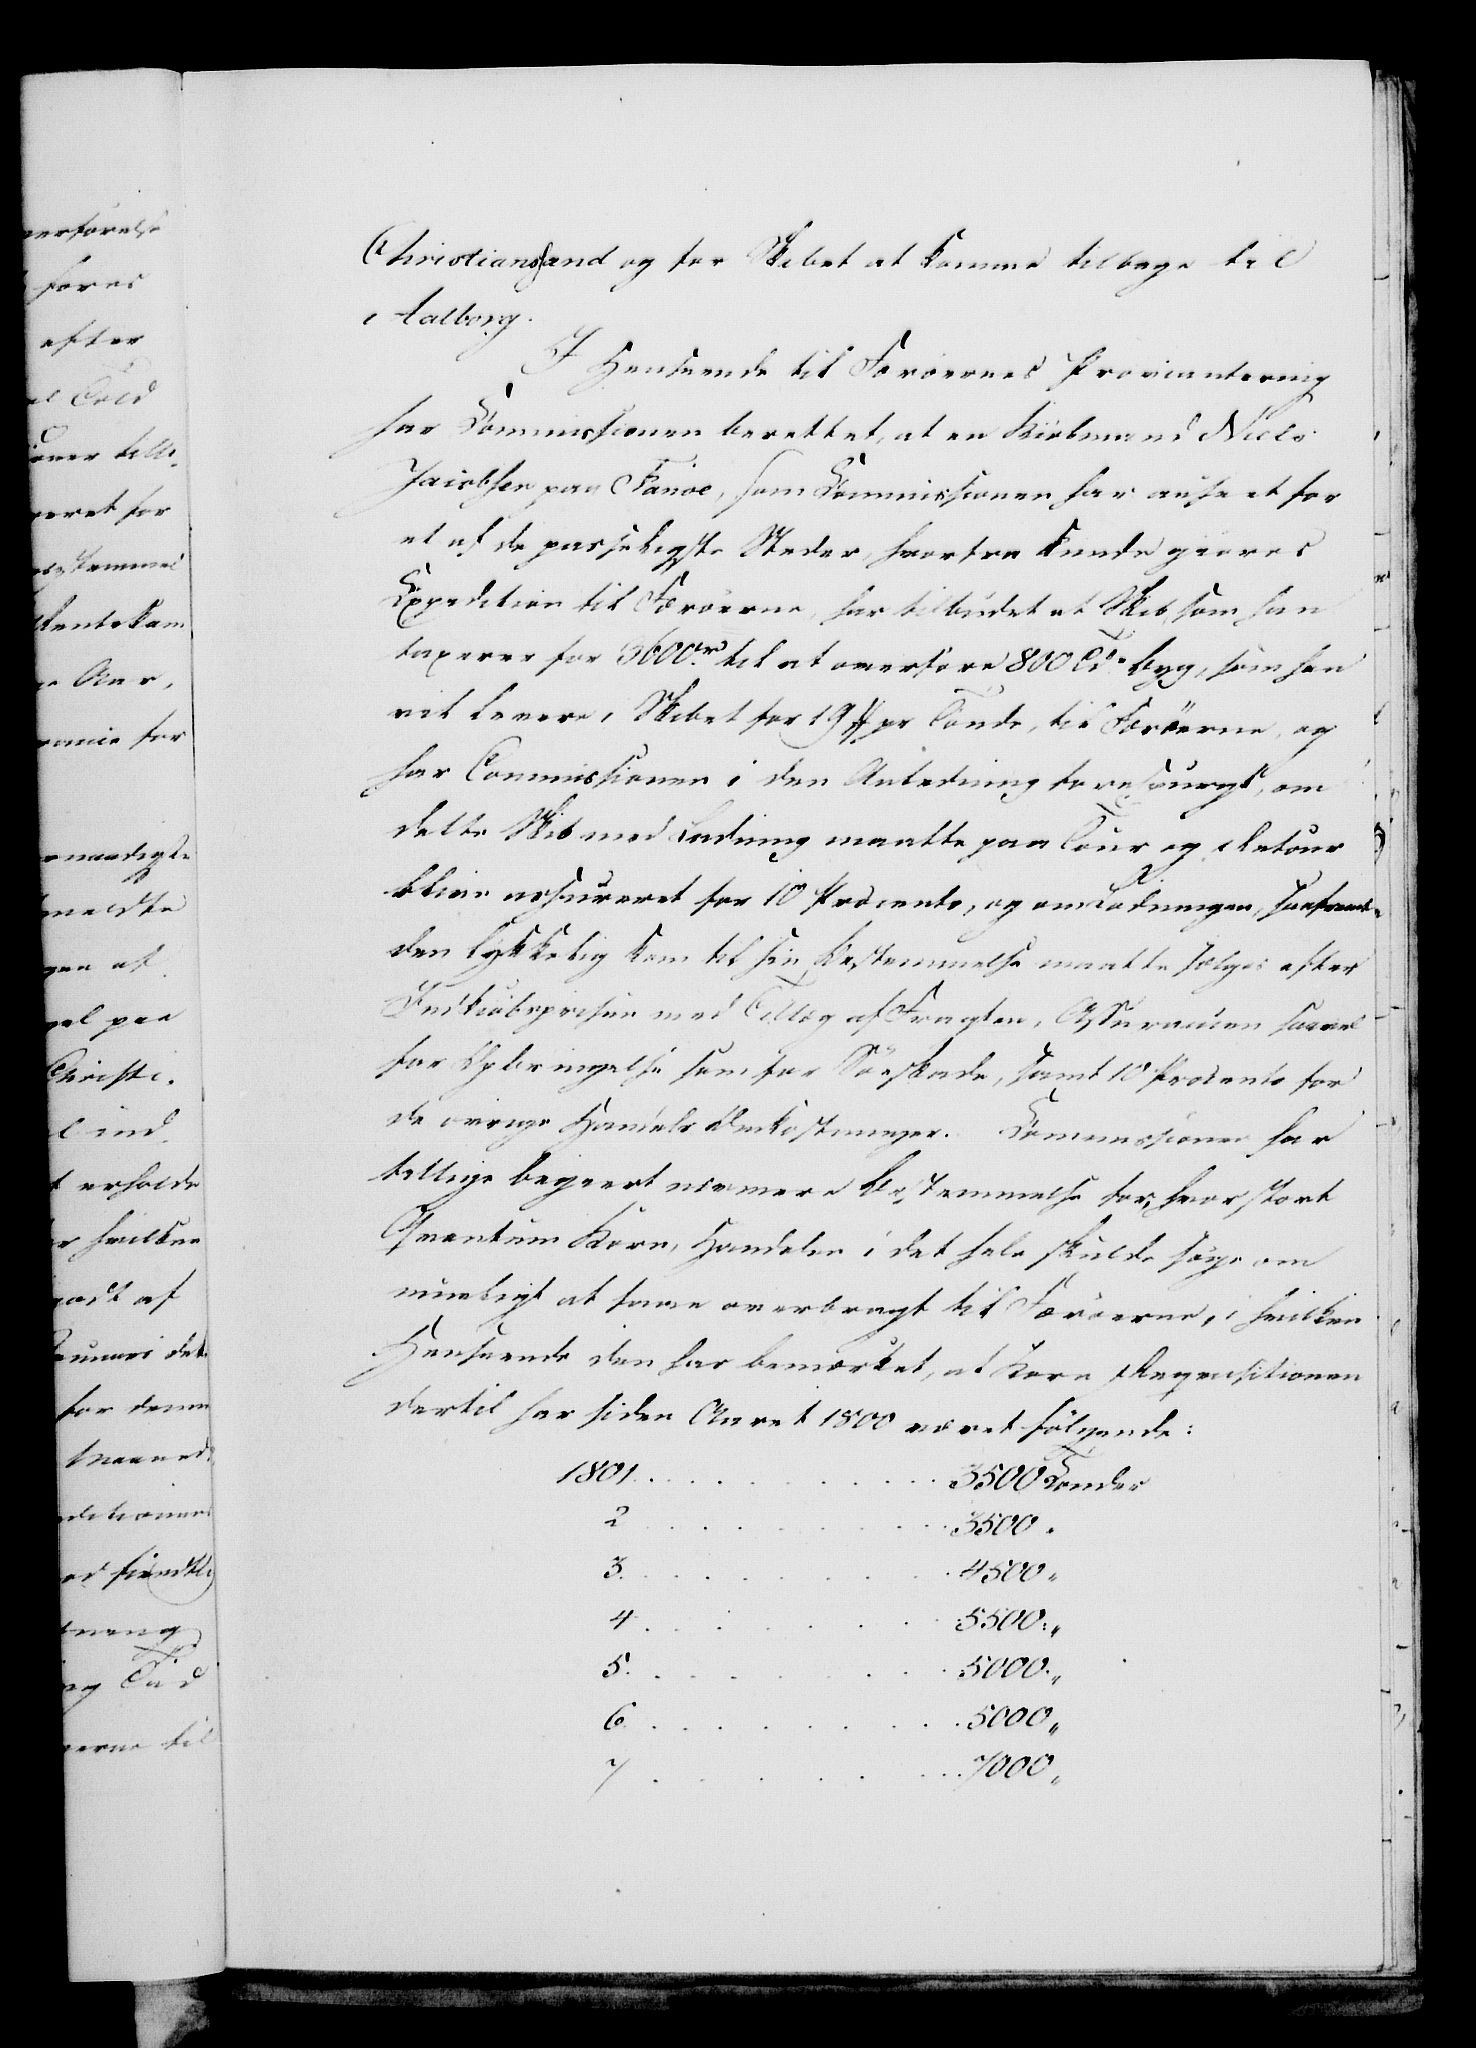 Christiansand og for Skibet at komme tilbage til
Aalborg.
I Henseende til Færøernes Proviantering
har Commissionen berettet, at en Kiøbmand Niels
Jacobsen paa Fanøe, som Commissionen har anseet for
et af de passeligste Steder, hvorfra kunde giøres
Expedition til Færøerne, har tilbudet et Skib, som han
taxerer for 3600 rd til at overføre 800 Td. Byg, som han
vil levere i Skibet for 19 ß pr Tønde, til Færøerne, og
har Commissionen i den Anledning forespurgt, om
dette Skib med Ladning maatte paa Tour og Retour
blive assureret for 10 Procento, og om Ladningen, saafremt
den lykkelig kom til sin Bestemmelse maatte sælges efter
Indkiøbsprisen med Tillæg af Fragten, Assurancen saavel
for Opbringelse som for Søeskade, samt 10 Procento for
de øvrige Handels Omkostninger. Commissionen har
tillige begiært nærmere Bestemmelse for, hvor stort
Qvantum Korn, Handelen i det hele skulde søge om
mueligt at faae overbragt til Færøerne, i hvilken
Henseende den har bemærket, at Korn Reqvisitionen
dertil har siden Aaret 1800 været følgende:
1801 . . . . . . . . . 3500 Tønder
2 . . . . . . . . . 3500 "
3 . . . . . . . . . 4500 "
4 . . . . . . . . . 5500 "
5 . . . . . . . . . 5000 "
6 . . . . . . . . . 5000 "
7 . . . . . . . . . 7000 "